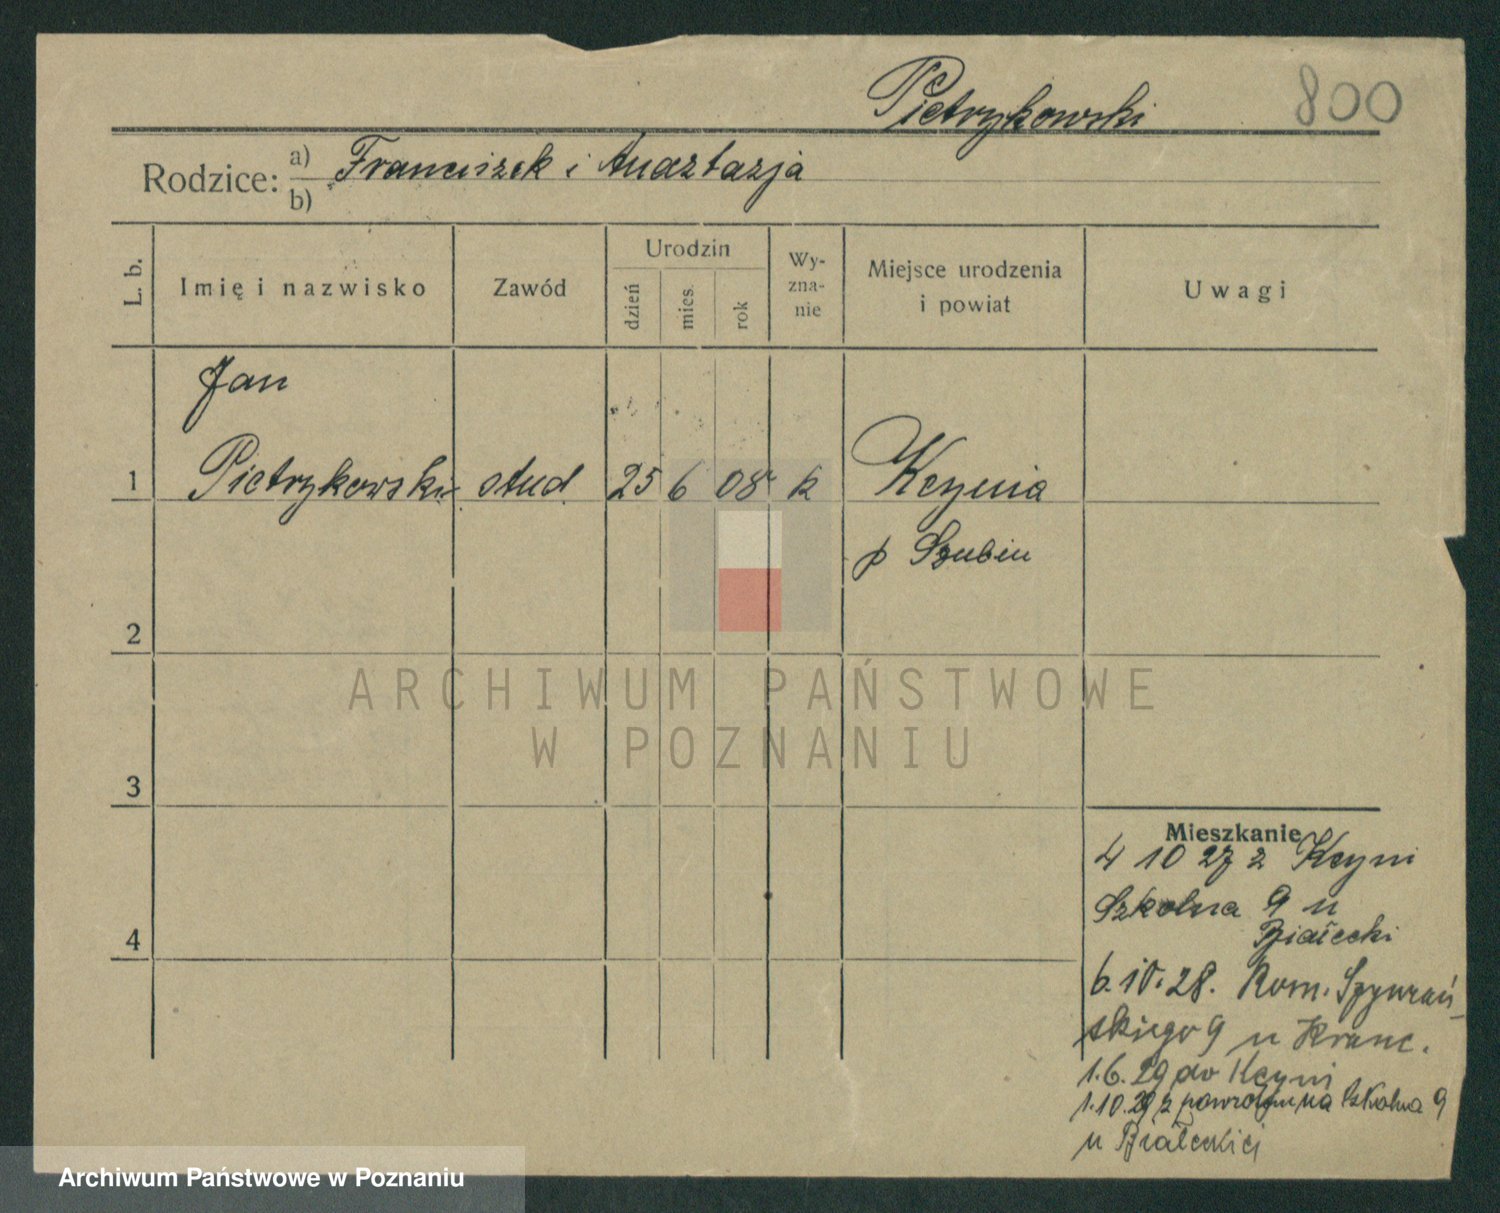 Pietrykowski
800
Rodzice: a) Franciszek i Anastazja
b)
L. b.
Imię i nazwisko
Zawód
Urodzin
dzień
mies.
rok
Wy-
zna-
nie
Miejsce urodzenia
i powiat
Uwagi
Jan
1 Pietrykowski stud 25 6 08 k Kcynia
p Szubin
2
3
4
Mieszkanie
4 10 27 z Kcyni
Szkolna 9 u
Białecki
6.10.28. Rom. Szymań-
skiego 9 u Kranc.
1.6.29 do Kcyni
1.10.29 z powrotem na Szkolna 9
u Białeckiej
ARCHIWUM PAŃSTWOWE
W POZNANIU
Archiwum Państwowe w Poznaniu